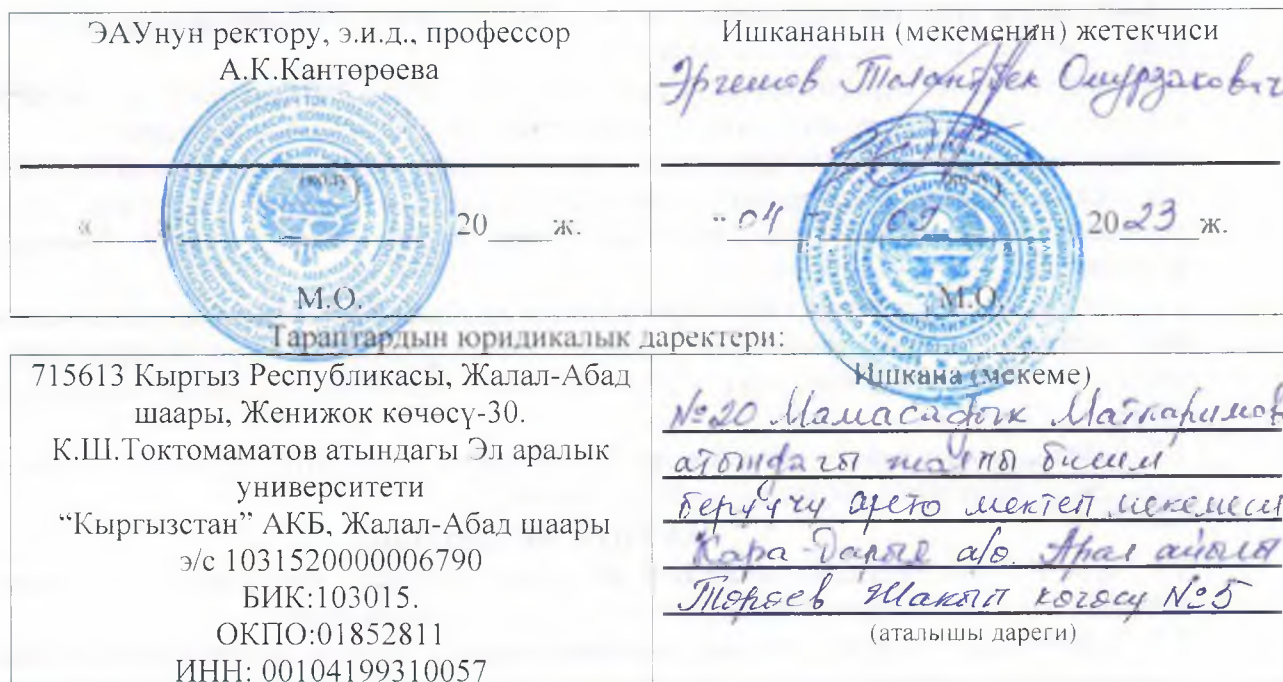 ЭАУнун ректору, э.и.д., профессор
А.К.Кантөрөева
(колу)
« 20 ж.
М.О.
Ишкананын (мекеменин) жетекчиси
Эргешов Талантбек Омурзакович
(колу)
“ 04 ” 09 2023 ж.
М.О.
Тараптардын юридикалык даректери:
715613 Кыргыз Республикасы, Жалал-Абад
шаары, Женижок көчөсү-30.
К.Ш.Токтомаматов атындагы Эл аралык
университети
“Кыргызстан” АКБ, Жалал-Абад шаары
э/с 1031520000006790
БИК:103015.
ОКПО:01852811
ИНН: 00104199310057
Ишкана (мекеме)
№20 Мамасадык Маткаримов
атындагы жалпы билим
берүүчү орто мектеп мекемеси
Кара-Дарыя а/о. Арал айылы
Жакып көчөсү №5
(аталышы дареги)